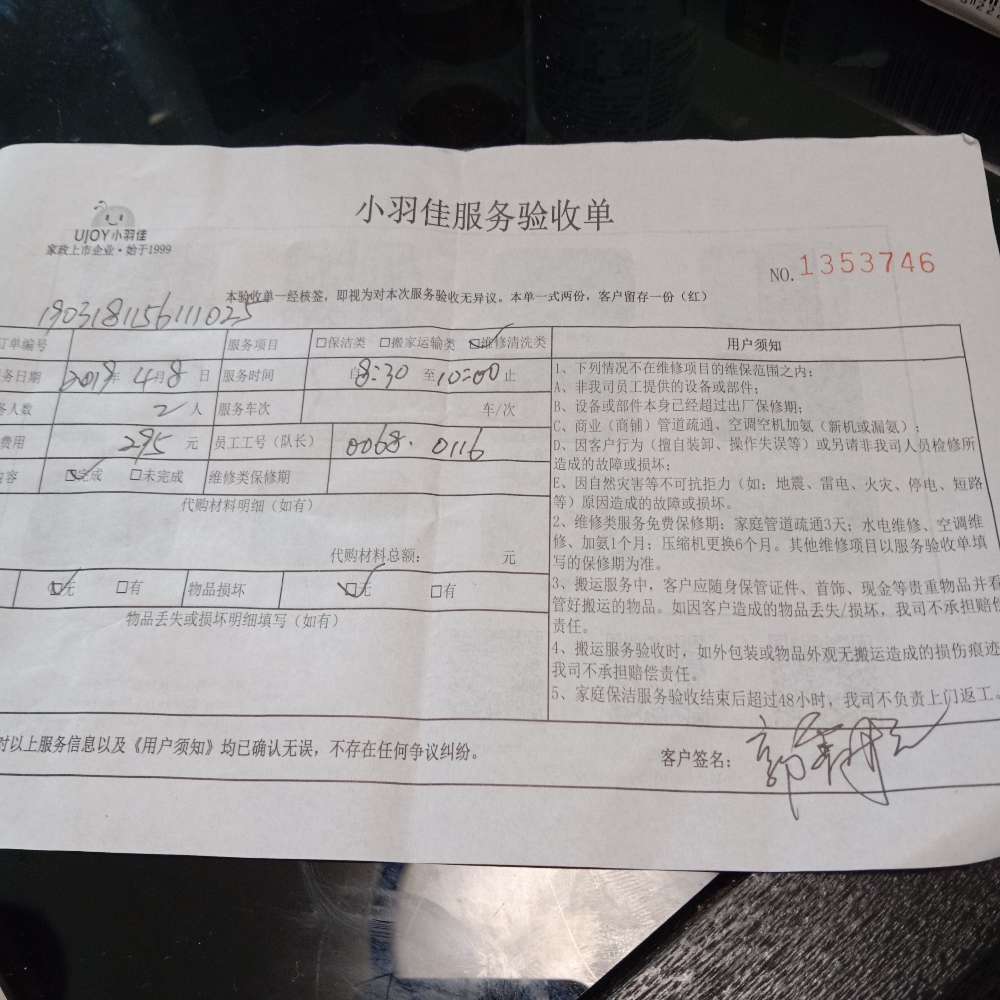 UJOY小羽佳
家政上市企业·始于1999
小羽佳服务验收单
NO.1353746
本验收单一经核签,即视为对本次服务验收无异议。本单一式两份,客户留存一份(红)
190318115611025
订单编号 服务项目 □保洁类 □搬家运输类 ☑维修清洗类
务日期 2019年4月8日 服务时间 自8:30至10:00止
务人数 2人 服务车次 车/次
费用 295元 员工工号(队长) 0068. 0116
内容 ☑完成 □未完成 维修类保修期
代购材料明细(如有)
代购材料总额: 元
☑无 □有 物品损坏 ☑无 □有
物品丢失或损坏明细填写(如有)
用户须知
1、下列情况不在维修项目的维保范围之内:
A、非我司员工提供的设备或部件;
B、设备或部件本身已经超过出厂保修期;
C、商业(商铺)管道疏通、空调空机加氨(新机或漏氨);
D、因客户行为(擅自装卸、操作失误等)或另请非我司人员检修所
造成的故障或损坏;
E、因自然灾害等不可抗拒力(如:地震、雷电、火灾、停电、短路
等)原因造成的故障或损坏。
2、维修类服务免费保修期:家庭管道疏通3天;水电维修、空调维
修、加氨1个月;压缩机更换6个月。其他维修项目以服务验收单填
写的保修期为准。
3、搬运服务中,客户应随身保管证件、首饰、现金等贵重物品并看
管好搬运的物品。如因客户造成的物品丢失/损坏,我司不承担赔偿
责任。
4、搬运服务验收时,如外包装或物品外观无搬运造成的损伤痕迹
我司不承担赔偿责任。
5、家庭保洁服务验收结束后超过48小时,我司不负责上门返工。
对以上服务信息以及《用户须知》均已确认无误,不存在任何争议纠纷。
客户签名: